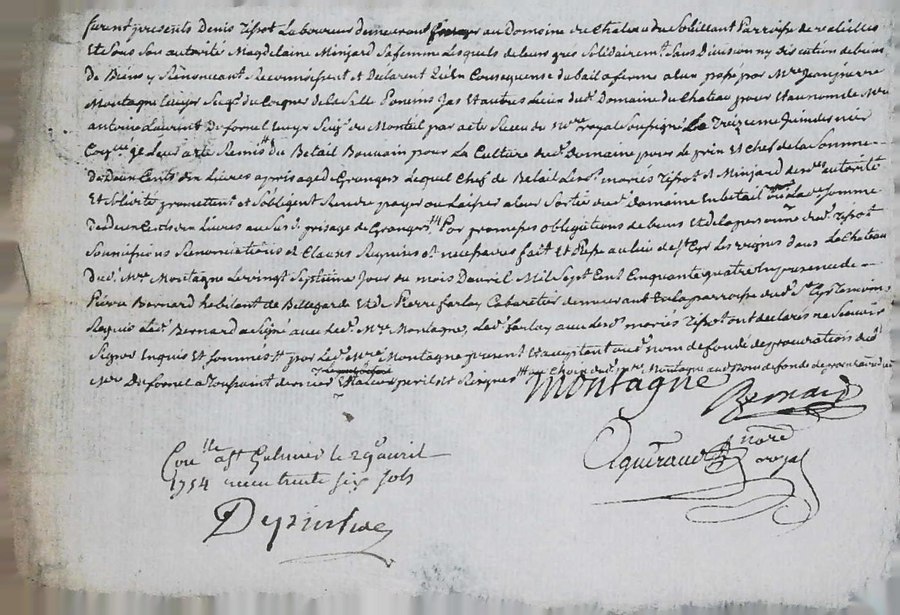 furent presents Denis Tissot Laboureur demeurant au Domaine du Chateau du Soleillant Parroisse de
Et de Sous Son autorité Magdelaine Minjard Sa femme Lesquels de leurs gres Solidairement Sans Division ny Discution de biens
De Biens y Renonceant Reconnoissent et Declarent Qu'En Consequense du bail a ferme a leur passé par Mre Jean pierre
Montagne Ecuyer Seigr du La Salle Poncins Jas Et autres Lieux dud. Domaine du Chateau pour Et au nom de Mre
antoine Laurent De fornel Ecuyer Seigr du Monteil par acte Receu du Nore royal Soussigné Le Treizieme Juin dernier
leur a Eté Remis du Betail pour La Culture dud. Domaine pour le prix Et Chef de la Somme
De Deux Cents dix Livres a prisage de Grangers Lequel Chef de Betail Lesd. mariés Tissot Et Minjard de autorité
Et Solidité promettent et s'obligent Rendre payer ou Laisser a leur Sortie dud. Domaine En betail ou Lad. Somme
De deux Cents dix Livres au Susd. prisage de Grangers Par promesses obligations de biens Et de la personne dud. Tissot
Soumissions Renonciations et Clauses Requises Et necessaires fait Et Passé au lieu de St Cyr Les vignes dans Le Chateau
Dud. Mre Montagne Le vingt Septieme Jour du mois D'avril Mil Sept Cent Cinquante quatre En presence de
Pierre Bernard habitant de Bellegarde Et de Pierre farlay Cabaretier demeurant En la parroisse dud. St Cyr Temoins
Requis Led. Bernard a Signé avec led. Mre Montagne, Led. farlay avec lesd. mariés Tissot ont declaré ne Scavoir
Signer Enquis Et Sommés par Led. Mre Montagne present Et acceptant aud. nom de fondé de procuration dud.
Mre De fornel a Toussaint dernier perils et Risques Mre Montagne aud. nom de fondé de procuration
Montagne
Bernard
nore
royal
Conlle a St Galmier le 29 avril
1754 receu trente six sols